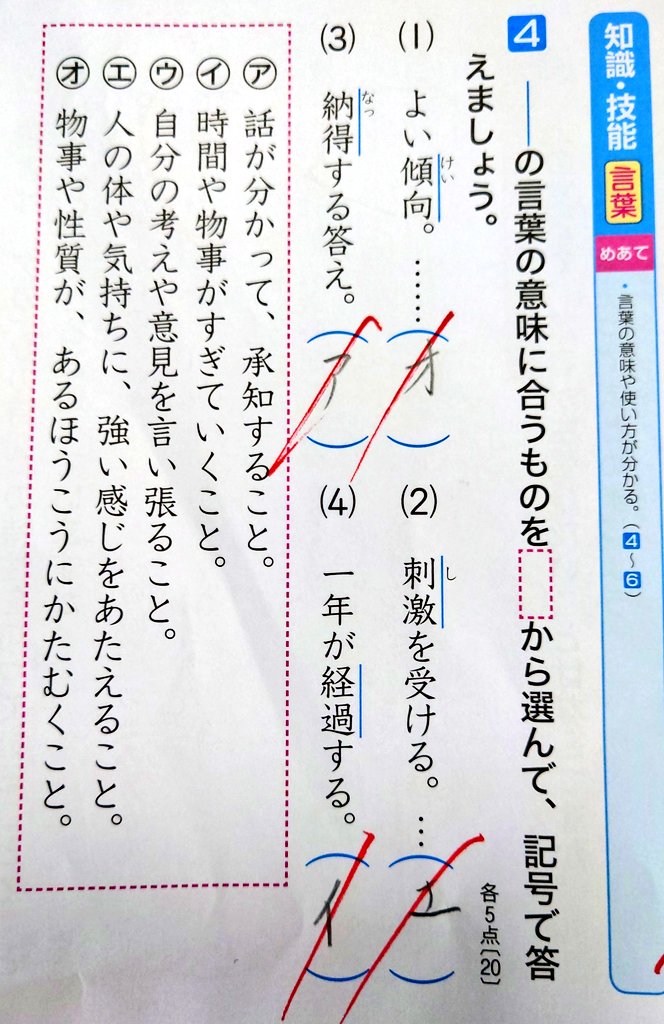 知識・技能 言葉
めあて
・言葉の意味や使い方が分かる。（4～6）
4 ――の言葉の意味に合うものを□から選んで、記号で答
えましょう。
各5点〔20〕
(1) よい傾向。……（オ）
けい
(2) 刺激を受ける。…（エ）
し
(3) 納得する答え。（ア）
なっ
(4) 一年が経過する。（イ）
ア 話が分かって、承知すること。
イ 時間や物事がすぎていくこと。
ウ 自分の考えや意見を言い張ること。
エ 人の体や気持ちに、強い感じをあたえること。
オ 物事や性質が、あるほうこうにかたむくこと。